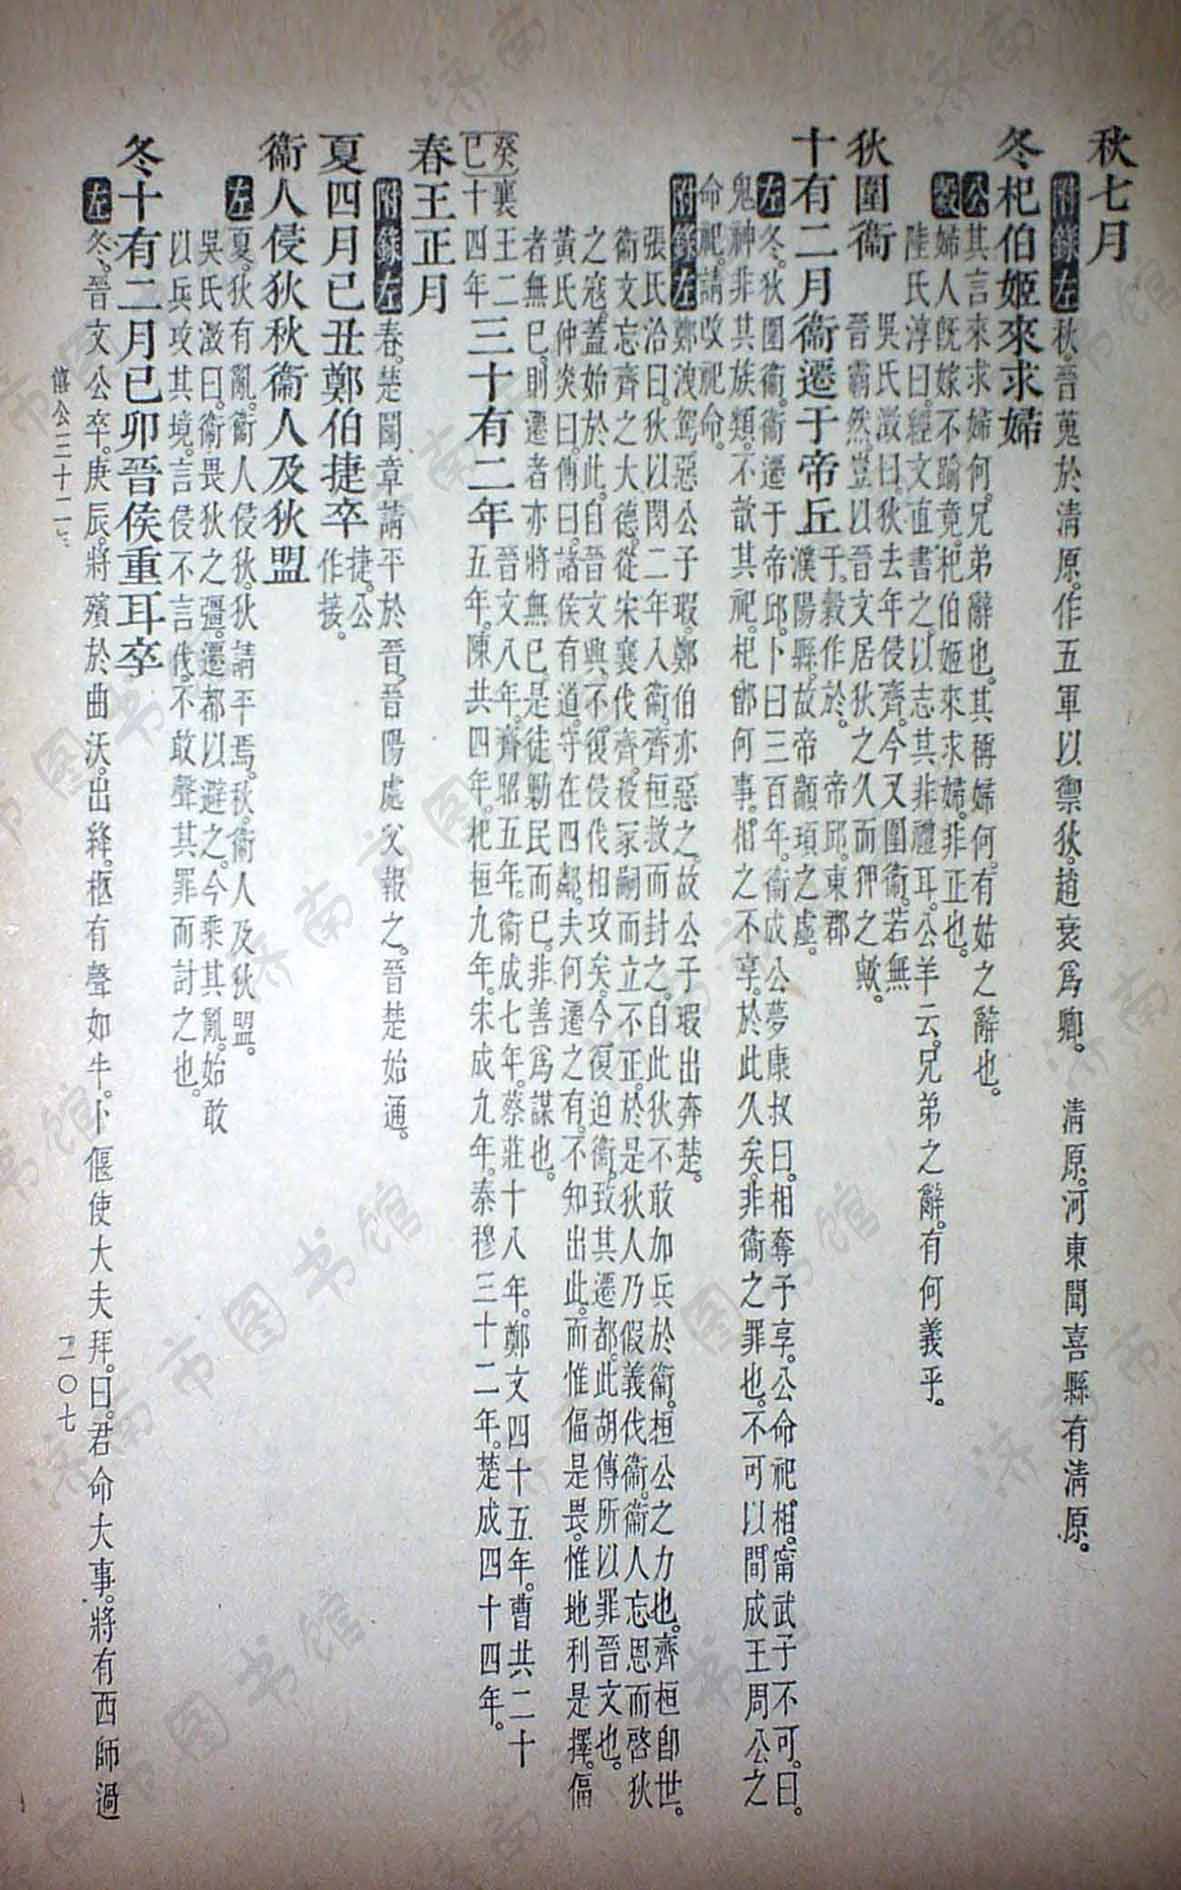 秋七月
附錄左 秋。晉蒐於清原。作五軍以禦狄。趙衰爲卿。 清原。河東聞喜縣有清原。
冬杞伯姬來求婦
公 其言來求婦何。兄弟辭也。其稱婦何。有姑之辭也。
穀 婦人旣嫁不踰竟。杞伯姬來求婦。非正也。
陸氏淳曰。經文直書之。以志其非禮耳。公羊云。兄弟之辭。有何義乎。
狄圍衞
吳氏澂曰。狄去年侵齊。今又圍衞。若無
晉霸然。豈以晉文居狄之久而狎之歟。
十有二月衞遷于帝丘 于。穀作於。 帝邱。東郡
濮陽縣。故帝顓頊之虛。
左 冬。狄圍衞。衞遷于帝邱。卜曰三百年。衞成公夢康叔曰。相奪予享。公命祀相。甯武子不可。曰。
鬼神非其族類。不歆其祀。杞鄫何事。相之不享。於此久矣。非衞之罪也。不可以間成王周公之
命祀。請改祀命。
附錄左 鄭洩駕惡公子瑕。鄭伯亦惡之。故公子瑕出奔楚。
張氏洽曰。狄以閔二年入衞。齊桓救而封之。自此狄不敢加兵於衞。桓公之力也。齊桓卽世。
衞文忘齊之大德。從宋襄伐齊。彼家嗣而立不正。於是狄人乃假義伐衞。衞人忘思而啓狄
之寇。蓋始於此。自晉文興。不復侵伐相攻矣。今復迫衞。致其遷都。此胡傳所以罪晉文也。
黃氏仲炎曰。傳曰。諸侯有道。守在四鄰。夫何遷之有。不知出此。而惟偪是畏。惟地利是擇。偪
者無已。則遷者亦將無已。是徒勤民而已。非善爲謀也。
癸巳 襄王二十四年 三十有二年 晉文八年。齊昭五年。衞成七年。蔡莊十八年。鄭文四十五年。曹共二十
五年。陳共四年。杞桓九年。宋成九年。秦穆三十二年。楚成四十四年。
春王正月
附錄左 春。楚鬬章請平於晉。晉陽處父報之。晉楚始通。
夏四月己丑鄭伯捷卒 捷。公作接。
衞人侵狄秋衞人及狄盟
左 夏。狄有亂。衞人侵狄。狄請平焉。秋。衞人及狄盟。
吳氏澂曰。衞畏狄之彊。遷都以避之。今乘其亂。始敢
以兵攻其境。言侵不言伐。不敢聲其罪而討之也。
冬十有二月己卯晉侯重耳卒
左 冬。晉文公卒。庚辰。將殯於曲沃。出絳。柩有聲如牛。卜偃使大夫拜。曰。君命大事。將有西師過
僖公三十二
二〇七
济南市图书馆